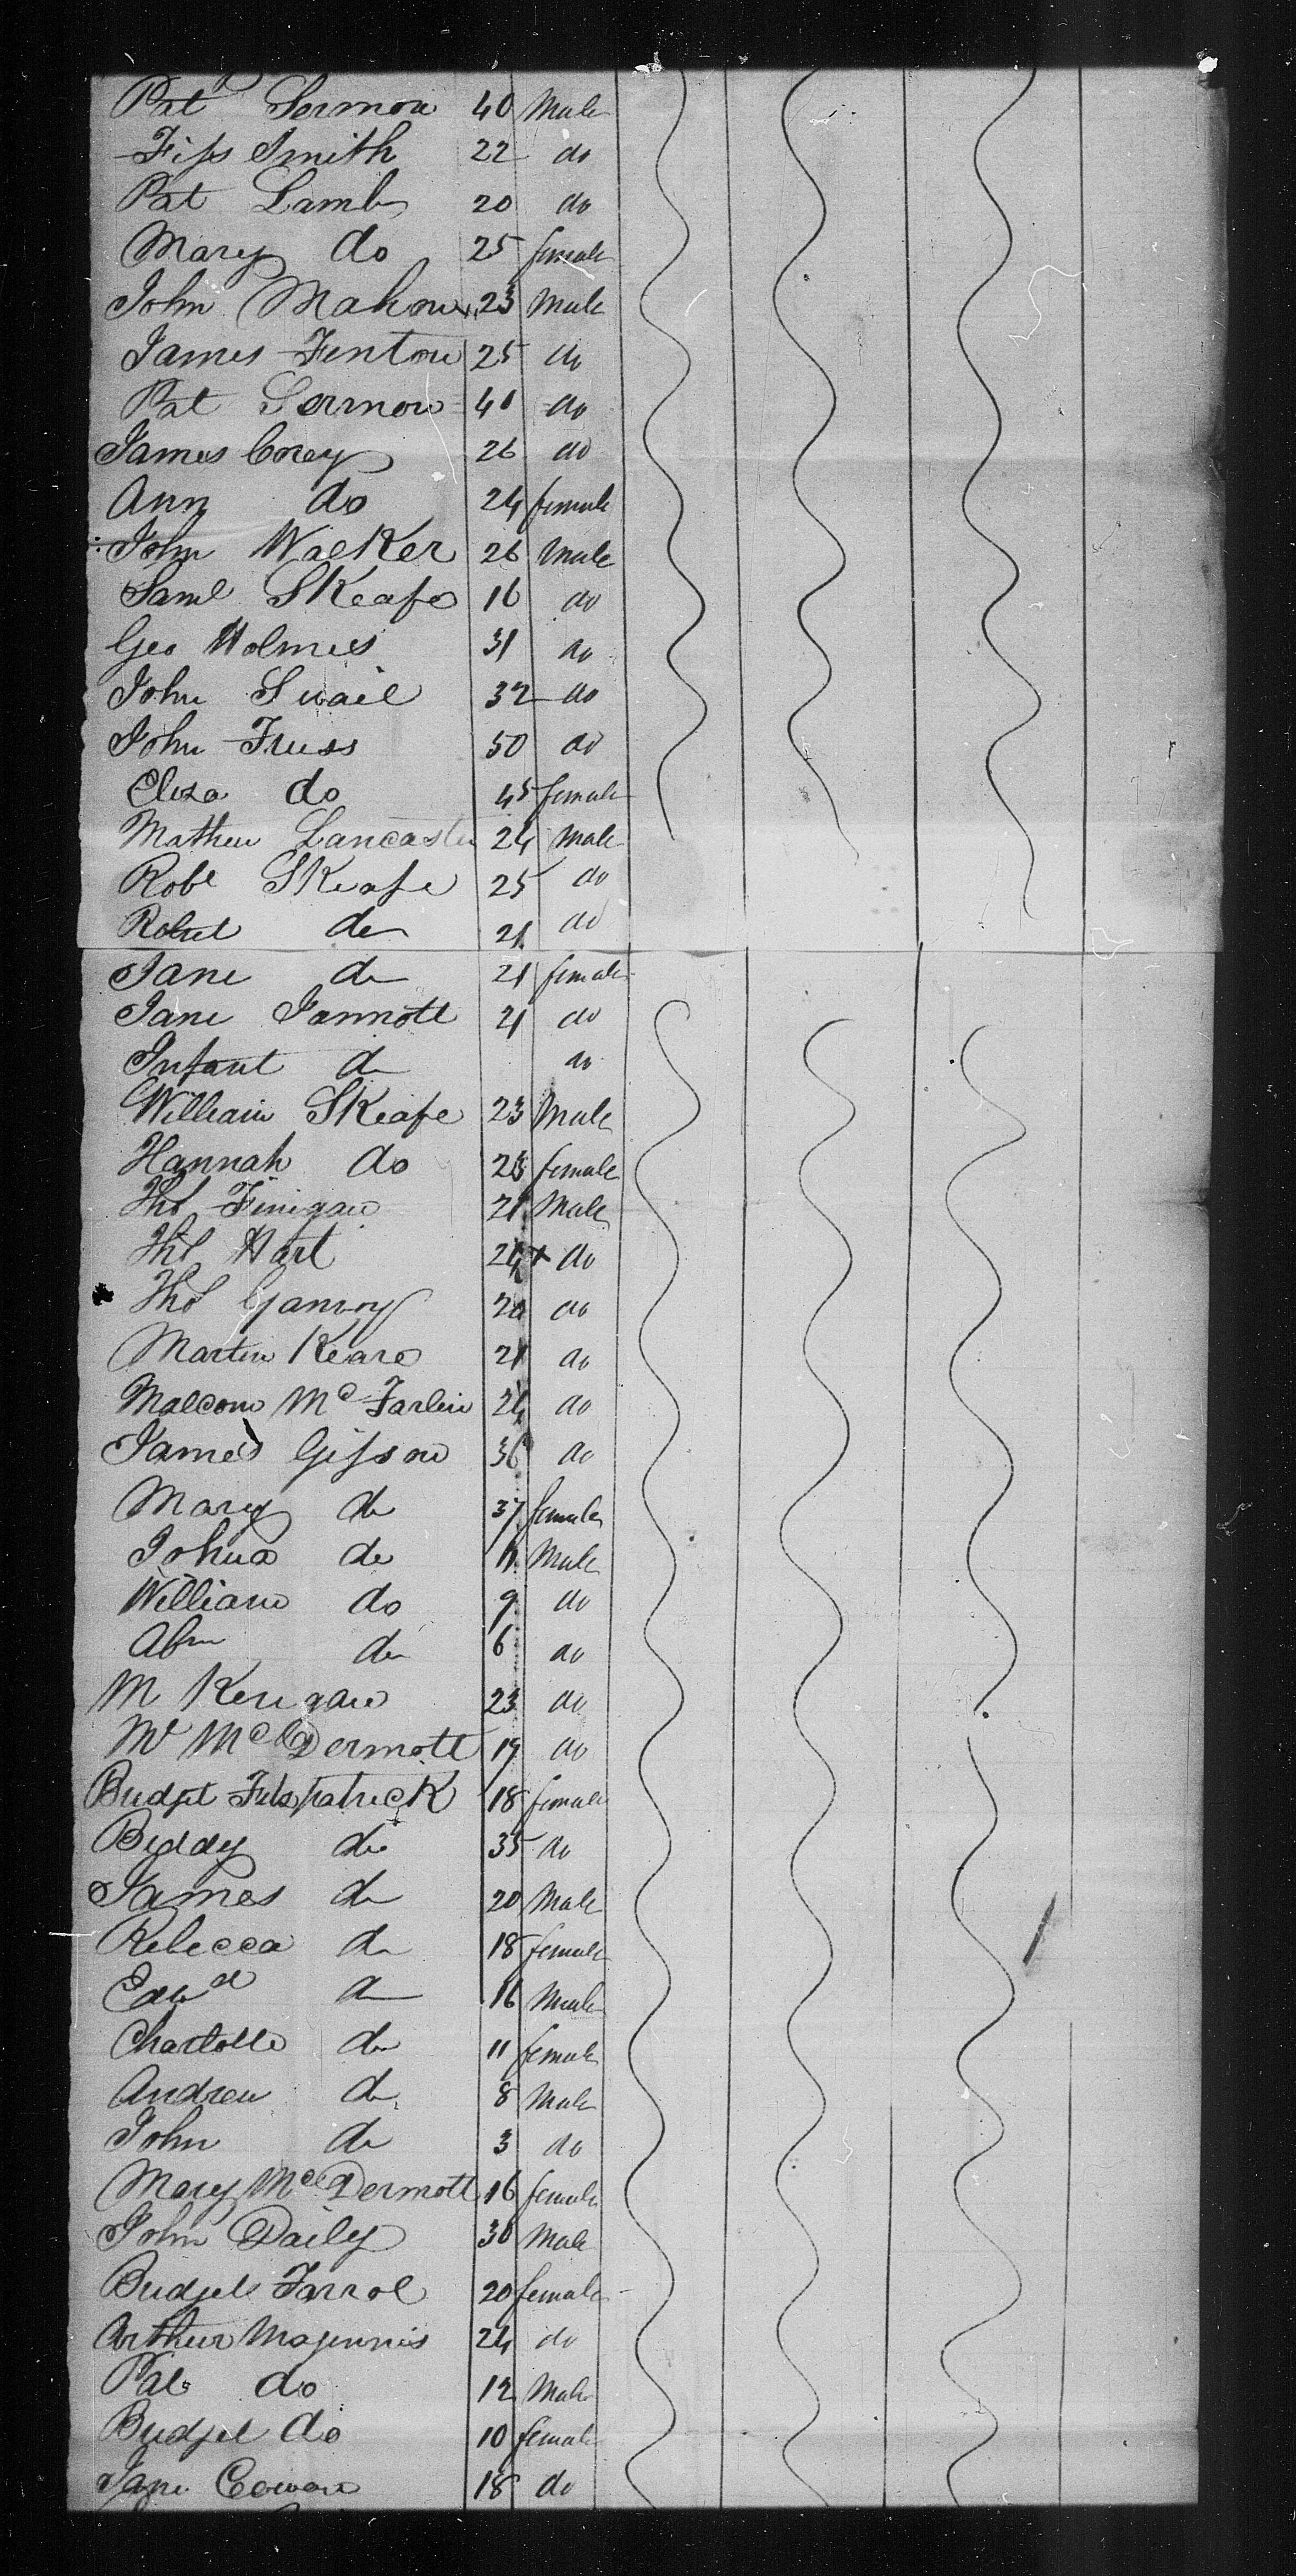 Pat Sermon 40 Male
Fiss Smith 22 do
Pat Lamb 20 do
Mary do 25 female
John Mahon 23 Male
James Fenton 25 do
Pat Sermon 40 do
James Corey 26 do
Ann do 24 female
John Walker 26 Male
Saml Skeafe 16 do
Geo Holmes 31 do
John Swail 32 do
John Truss 50 do
Eliza do 45 female
Mathew Lancaster 24 Male
Robt Skeafe 25 do
Robert do 21 do
Jane do 21 female
Jane Jannott 21 do
Infant do do
William Skeafe 23 Male
Hannah do 23 female
Tho Finigan 21 Male
Tho Hart 24 + do
Tho Ganvoy 20 do
Martin Keare 21 do
Malcom Mc Farlin 24 do
James Gipson 36 do
Mary do 37 female
Johua do 11 Male
William do 9 do
Abm do 6 do
M Kerigan 23 do
Mc Dermott 19 do
Bridget Fitspatrick 18 female
Biddy do 35 do
James do 20 Male
Rebecca do 18 female
Edwd do 16 Male
Charlotte do 11 female
Andrew do 8 Male
John do 3 do
Mary Mc Dermott 16 female
John Daily 30 Male
Bridget Farrol 20 female
Arthur Magennis 24 do
Pat do 12 Male
Bridget do 10 female
Jane Cowan 18 do